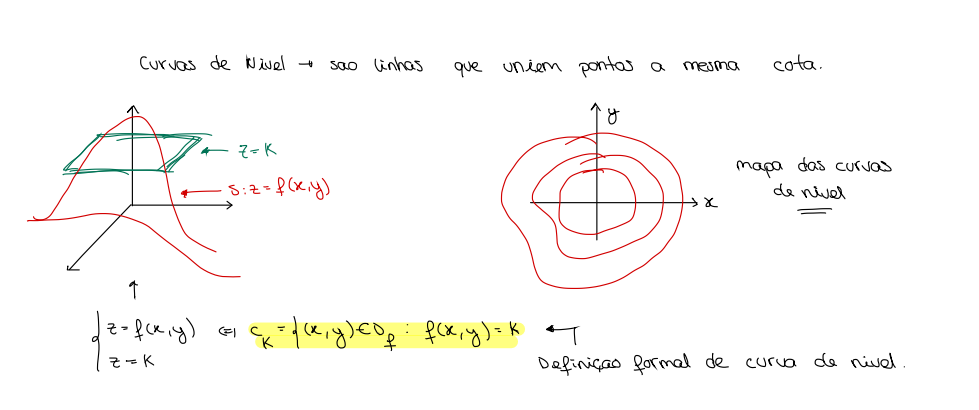 Curvas de Nível → sao linhas que uniem pontos a mesma cota.
z = K
S: z = f(x,y)
y
x
mapa das curvas
de nível
{ z = f(x,y) ⇔ C_K = { (x,y) ∈ D_f : f(x,y) = K
z = K
Definiçao formal de curva de nível.